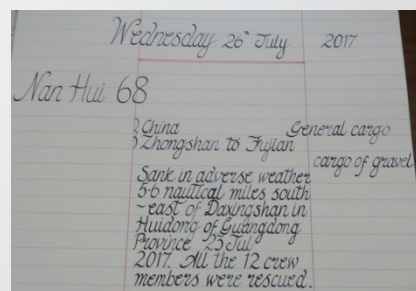 Wednesday 26th July 2017
Nan Hui 68
China General cargo
Zhongshan to Fujian
cargo of gravel
Sank in adverse weather
56 nautical miles south
~east of Daxingshan in
Huidong of Guangdong
Province 25 Jul
2017. All the 12 crew
members were rescued.